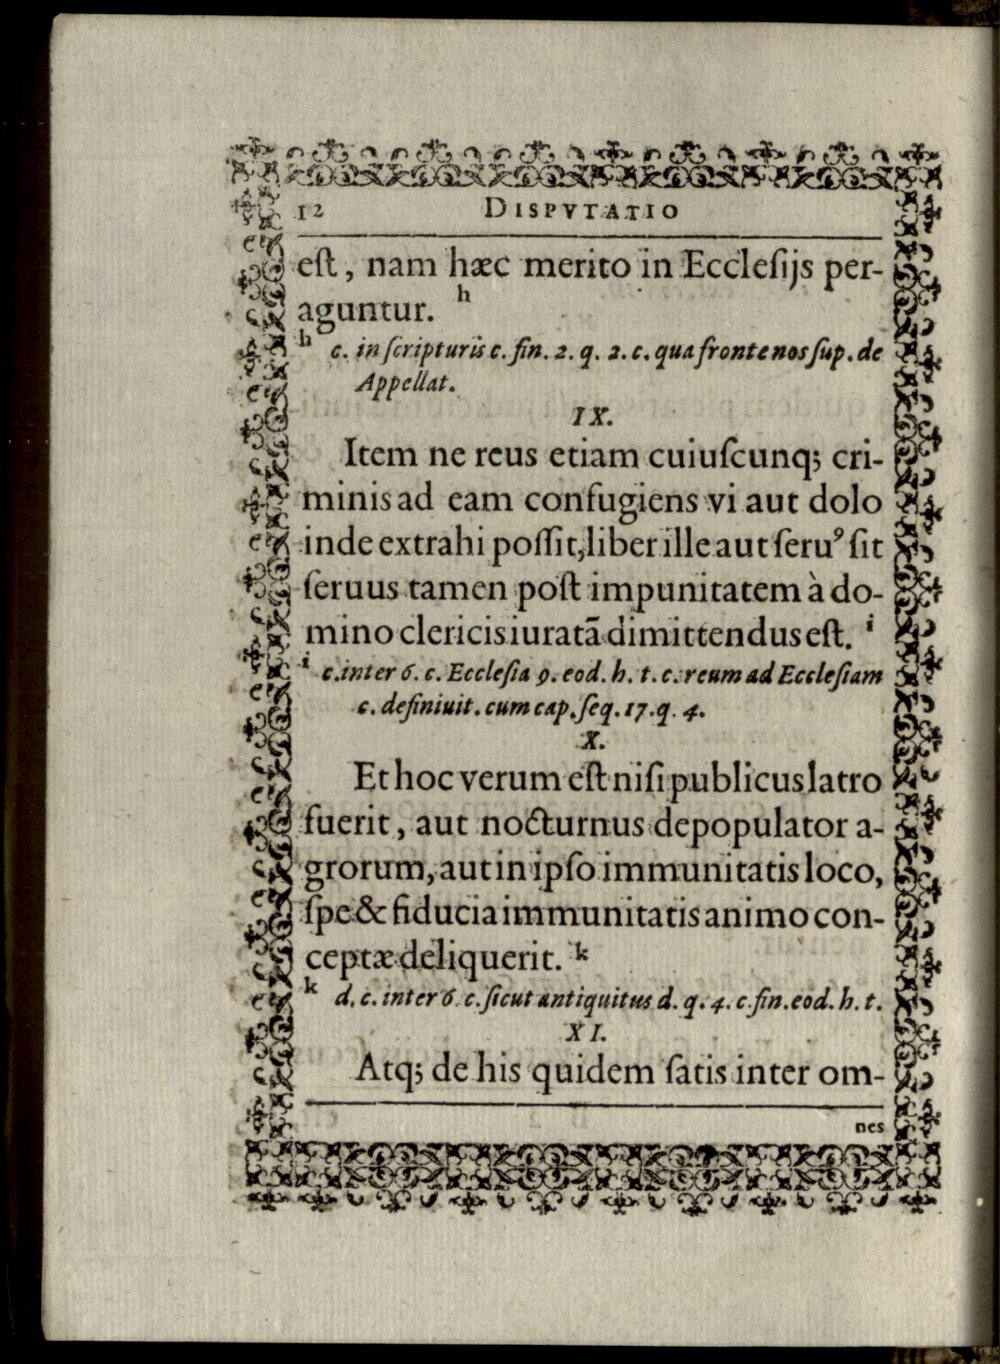 12 DISPVTATIO
est, nam hæc merito in Ecclesijs per-
aguntur. h
h c. in scripturis c. fin. 2. q. 2. c. qua fronte nos sup. de
Appellat.
IX.
Item ne reus etiam cuiuscunq; cri-
minis ad eam confugiens vi aut dolo
inde extrahi possit, liber ille aut seruꝰ sit
seruus tamen post impunitatem à do-
mino clericis iuratã dimittendus est. i
i c. inter 6. c. Ecclesia 9. eod. h. t. c. reum ad Ecclesiam
c. definiuit. cum cap. seq. 17. q. 4.
X.
Et hoc verum est nisi publicus latro
fuerit, aut nocturnus depopulator a-
grorum, aut in ipso immunitatis loco,
spe & fiducia immunitatis animo con-
ceptæ deliquerit. k
k d. c. inter 6. c. sicut antiquitus d. q. 4. c. fin. eod. h. t.
XI.
Atq; de his quidem satis inter om-
nes